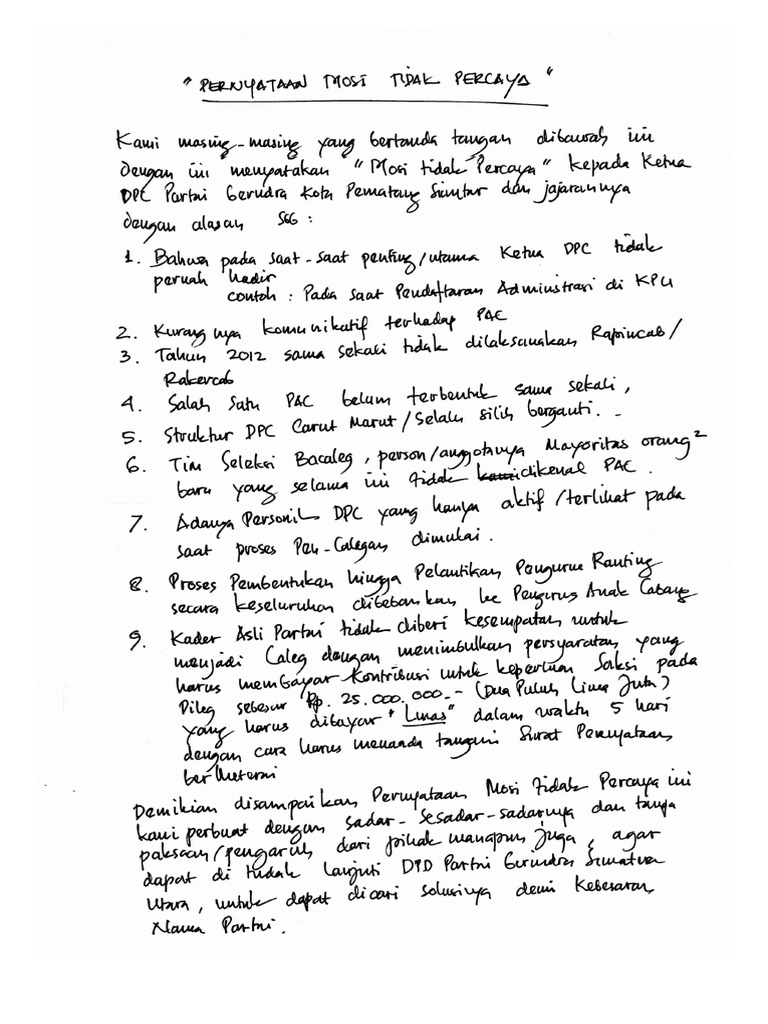 " PERNYATAAN MOSI TIDAK PERCAYA "
Kami masing-masing yang bertanda tangan dibawah ini
dengan ini menyatakan "Mosi tidak Percaya" kepada Ketua
DPC Partai Gerindra Kota Pematang Siantar dan jajarannya
dengan alasan sbb :
1. Bahwa pada saat-saat penting/utama Ketua DPC tidak
pernah hadir
contoh : Pada saat Pendaftaran Administrasi di KPU
2. Kurang nya komunikatif terhadap PAC
3. Tahun 2012 sama sekali tidak dilaksanakan Rapimcab/
Rakercab
4. Salah Satu PAC belum terbentuk sama sekali,
5. Struktur DPC Carut Marut/Selalu silih berganti. -
6. Tim Seleksi Bacaleg, person/anggotanya Mayoritas orang²
baru yang selama ini tidak kami dikenal PAC.
7. Adanya Personil DPC yang hanya aktif/terlihat pada
saat proses Pen-Calegan dimulai.
8. Proses Pembentukan hingga Pelantikan Pengurus Ranting
secara keseluruhan dibebankan ke Pengurus Anak Cabang
9. Kader Asli Partai tidak diberi kesempatan untuk
menjadi Caleg dengan menimbulkan persyaratan yang
harus membayar Kontribusi untuk keperluan Saksi pada
Pileg sebesar Rp. 25.000.000.- (Dua Puluh Lima Juta)
yang harus dibayar "Lunas" dalam waktu 5 hari
dengan cara harus menanda tangani Surat Pernyataan
berMeterai
Demikian disampaikan Pernyataan Mosi Tidak Percaya ini
kami perbuat dengan sadar-sesadar-sadarnya dan tanpa
paksaan/pengaruh dari pihak manapun juga, agar
dapat di tindak lanjuti DPD Partai Gerindra Sumatera
Utara, untuk dapat dicari solusinya demi Kebesaran
Nama Partai.